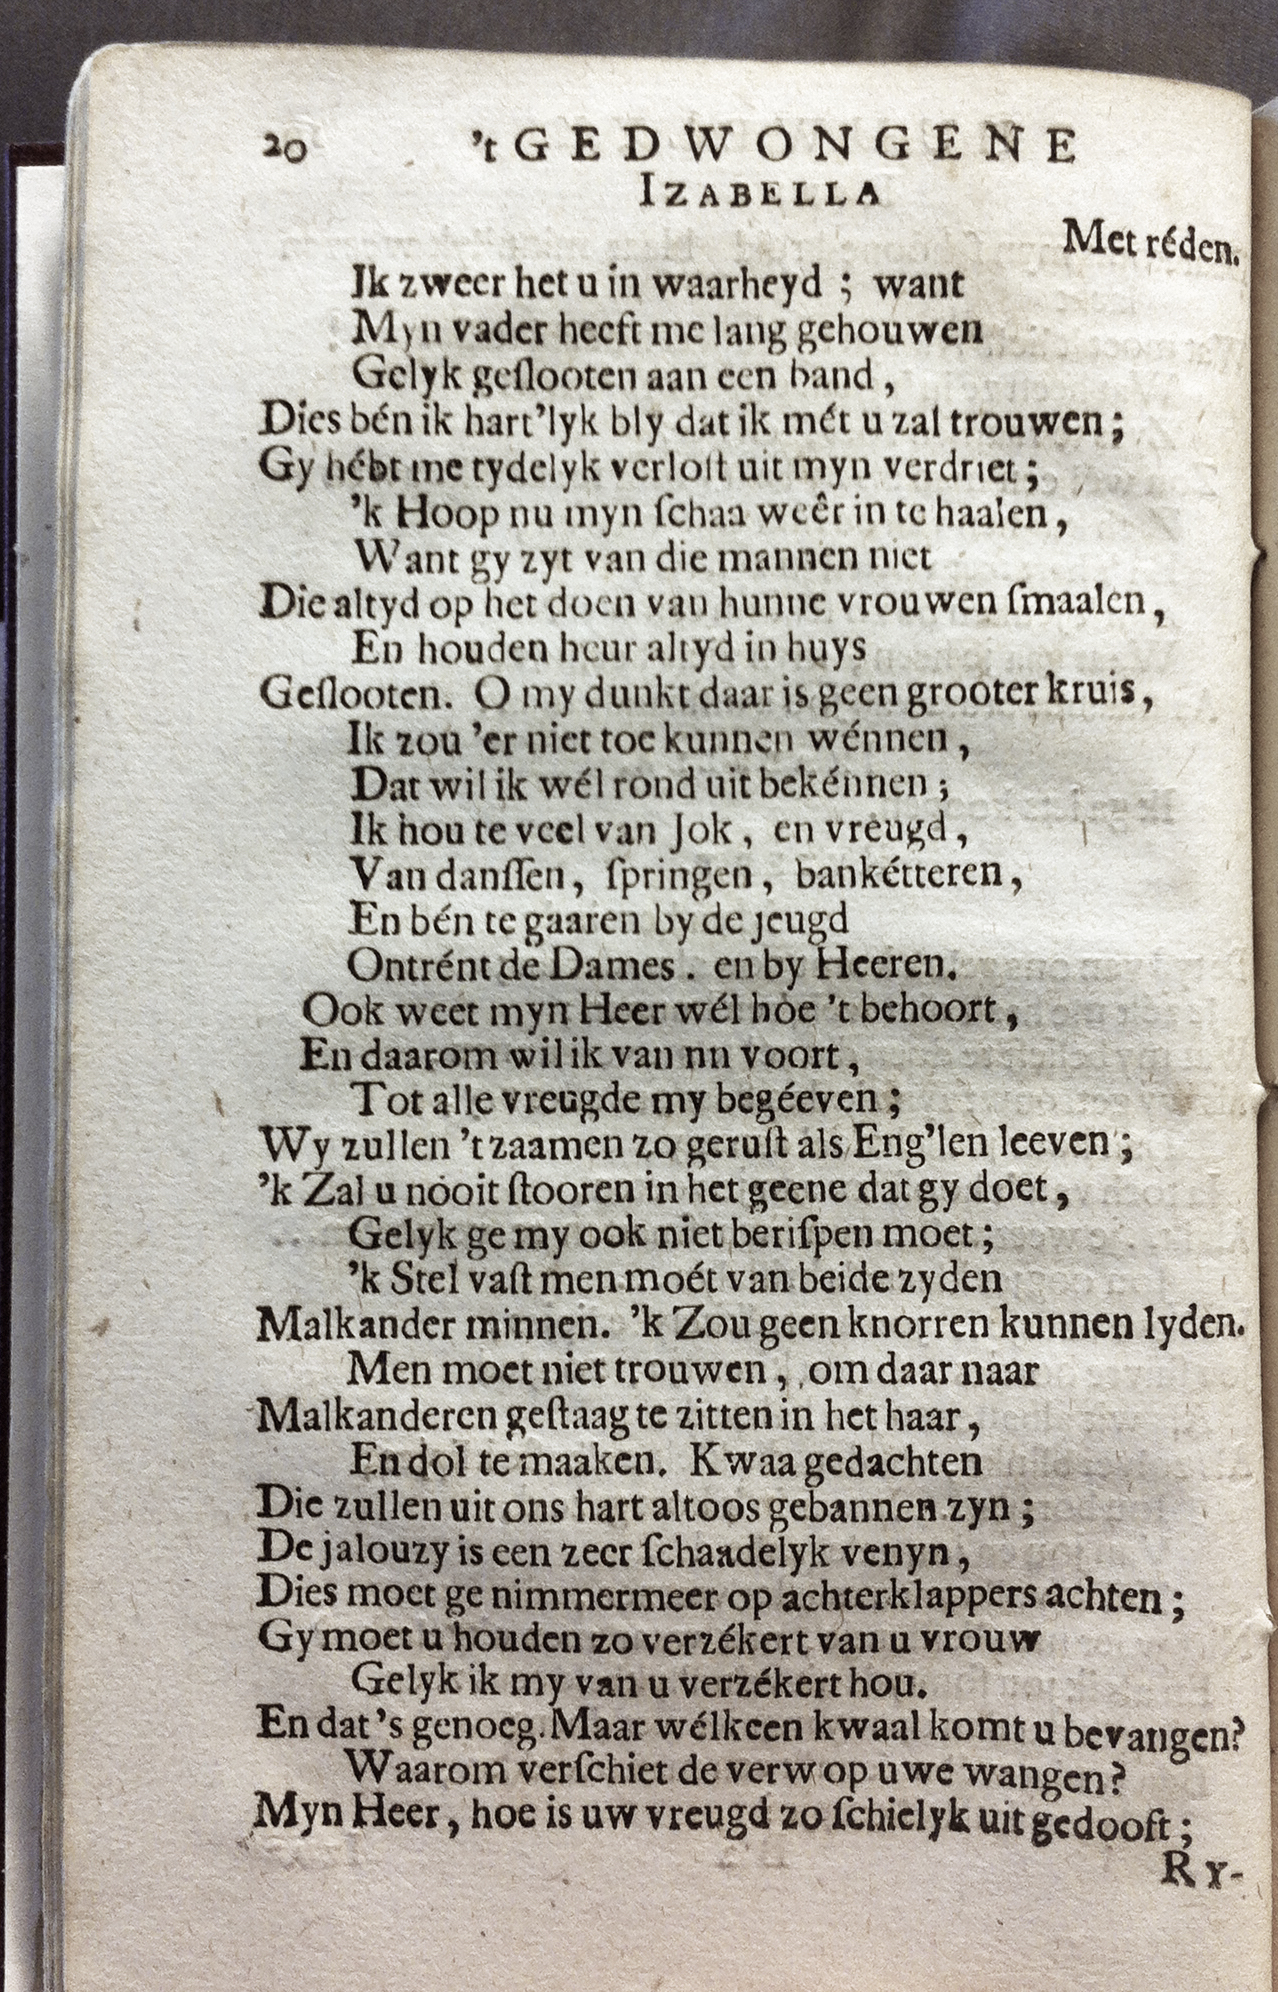 20 't GEDWONGENE
IZABELLA
Met réden.
Ik zweer het u in waarheyd ; want
Myn vader heeft me lang gehouwen
Gelyk geſlooten aan een band,
Dies bén ik hart'lyk bly dat ik mét u zal trouwen;
Gy hébt me tydelyk verloſt uit myn verdriet;
'k Hoop nu myn ſchaa weêr in te haalen,
Want gy zyt van die mannen niet
Die altyd op het doen van hunne vrouwen ſmaalen,
En houden heur altyd in huys
Geſlooten. O my dunkt daar is geen grooter kruis,
Ik zou 'er niet toe kunnen wénnen,
Dat wil ik wél rond uit bekénnen;
Ik hou te veel van Jok, en vreugd,
Van danſſen, ſpringen, bankétteren,
En bén te gaaren by de jeugd
Ontrént de Dames. en by Heeren.
Ook weet myn Heer wél hoe 't behoort,
En daarom wil ik van nn voort,
Tot alle vreugde my begéeven;
Wy zullen 't zaamen zo geruſt als Eng'len leeven;
'k Zal u nooit ſtooren in het geene dat gy doet,
Gelyk ge my ook niet beriſpen moet;
'k Stel vaſt men moét van beide zyden
Malkander minnen. 'k Zou geen knorren kunnen lyden.
Men moet niet trouwen, om daar naar
Malkanderen geſtaag te zitten in het haar,
En dol te maaken. Kwaa gedachten
Die zullen uit ons hart altoos gebannen zyn;
De jalouzy is een zeer ſchaadelyk venyn,
Dies moet ge nimmermeer op achterklappers achten;
Gy moet u houden zo verzékert van u vrouw
Gelyk ik my van u verzékert hou.
En dat 's genoeg. Maar wélkeen kwaal komt u bevangen?
Waarom verſchiet de verw op uwe wangen?
Myn Heer, hoe is uw vreugd zo ſchielyk uit gedooft;
RY-